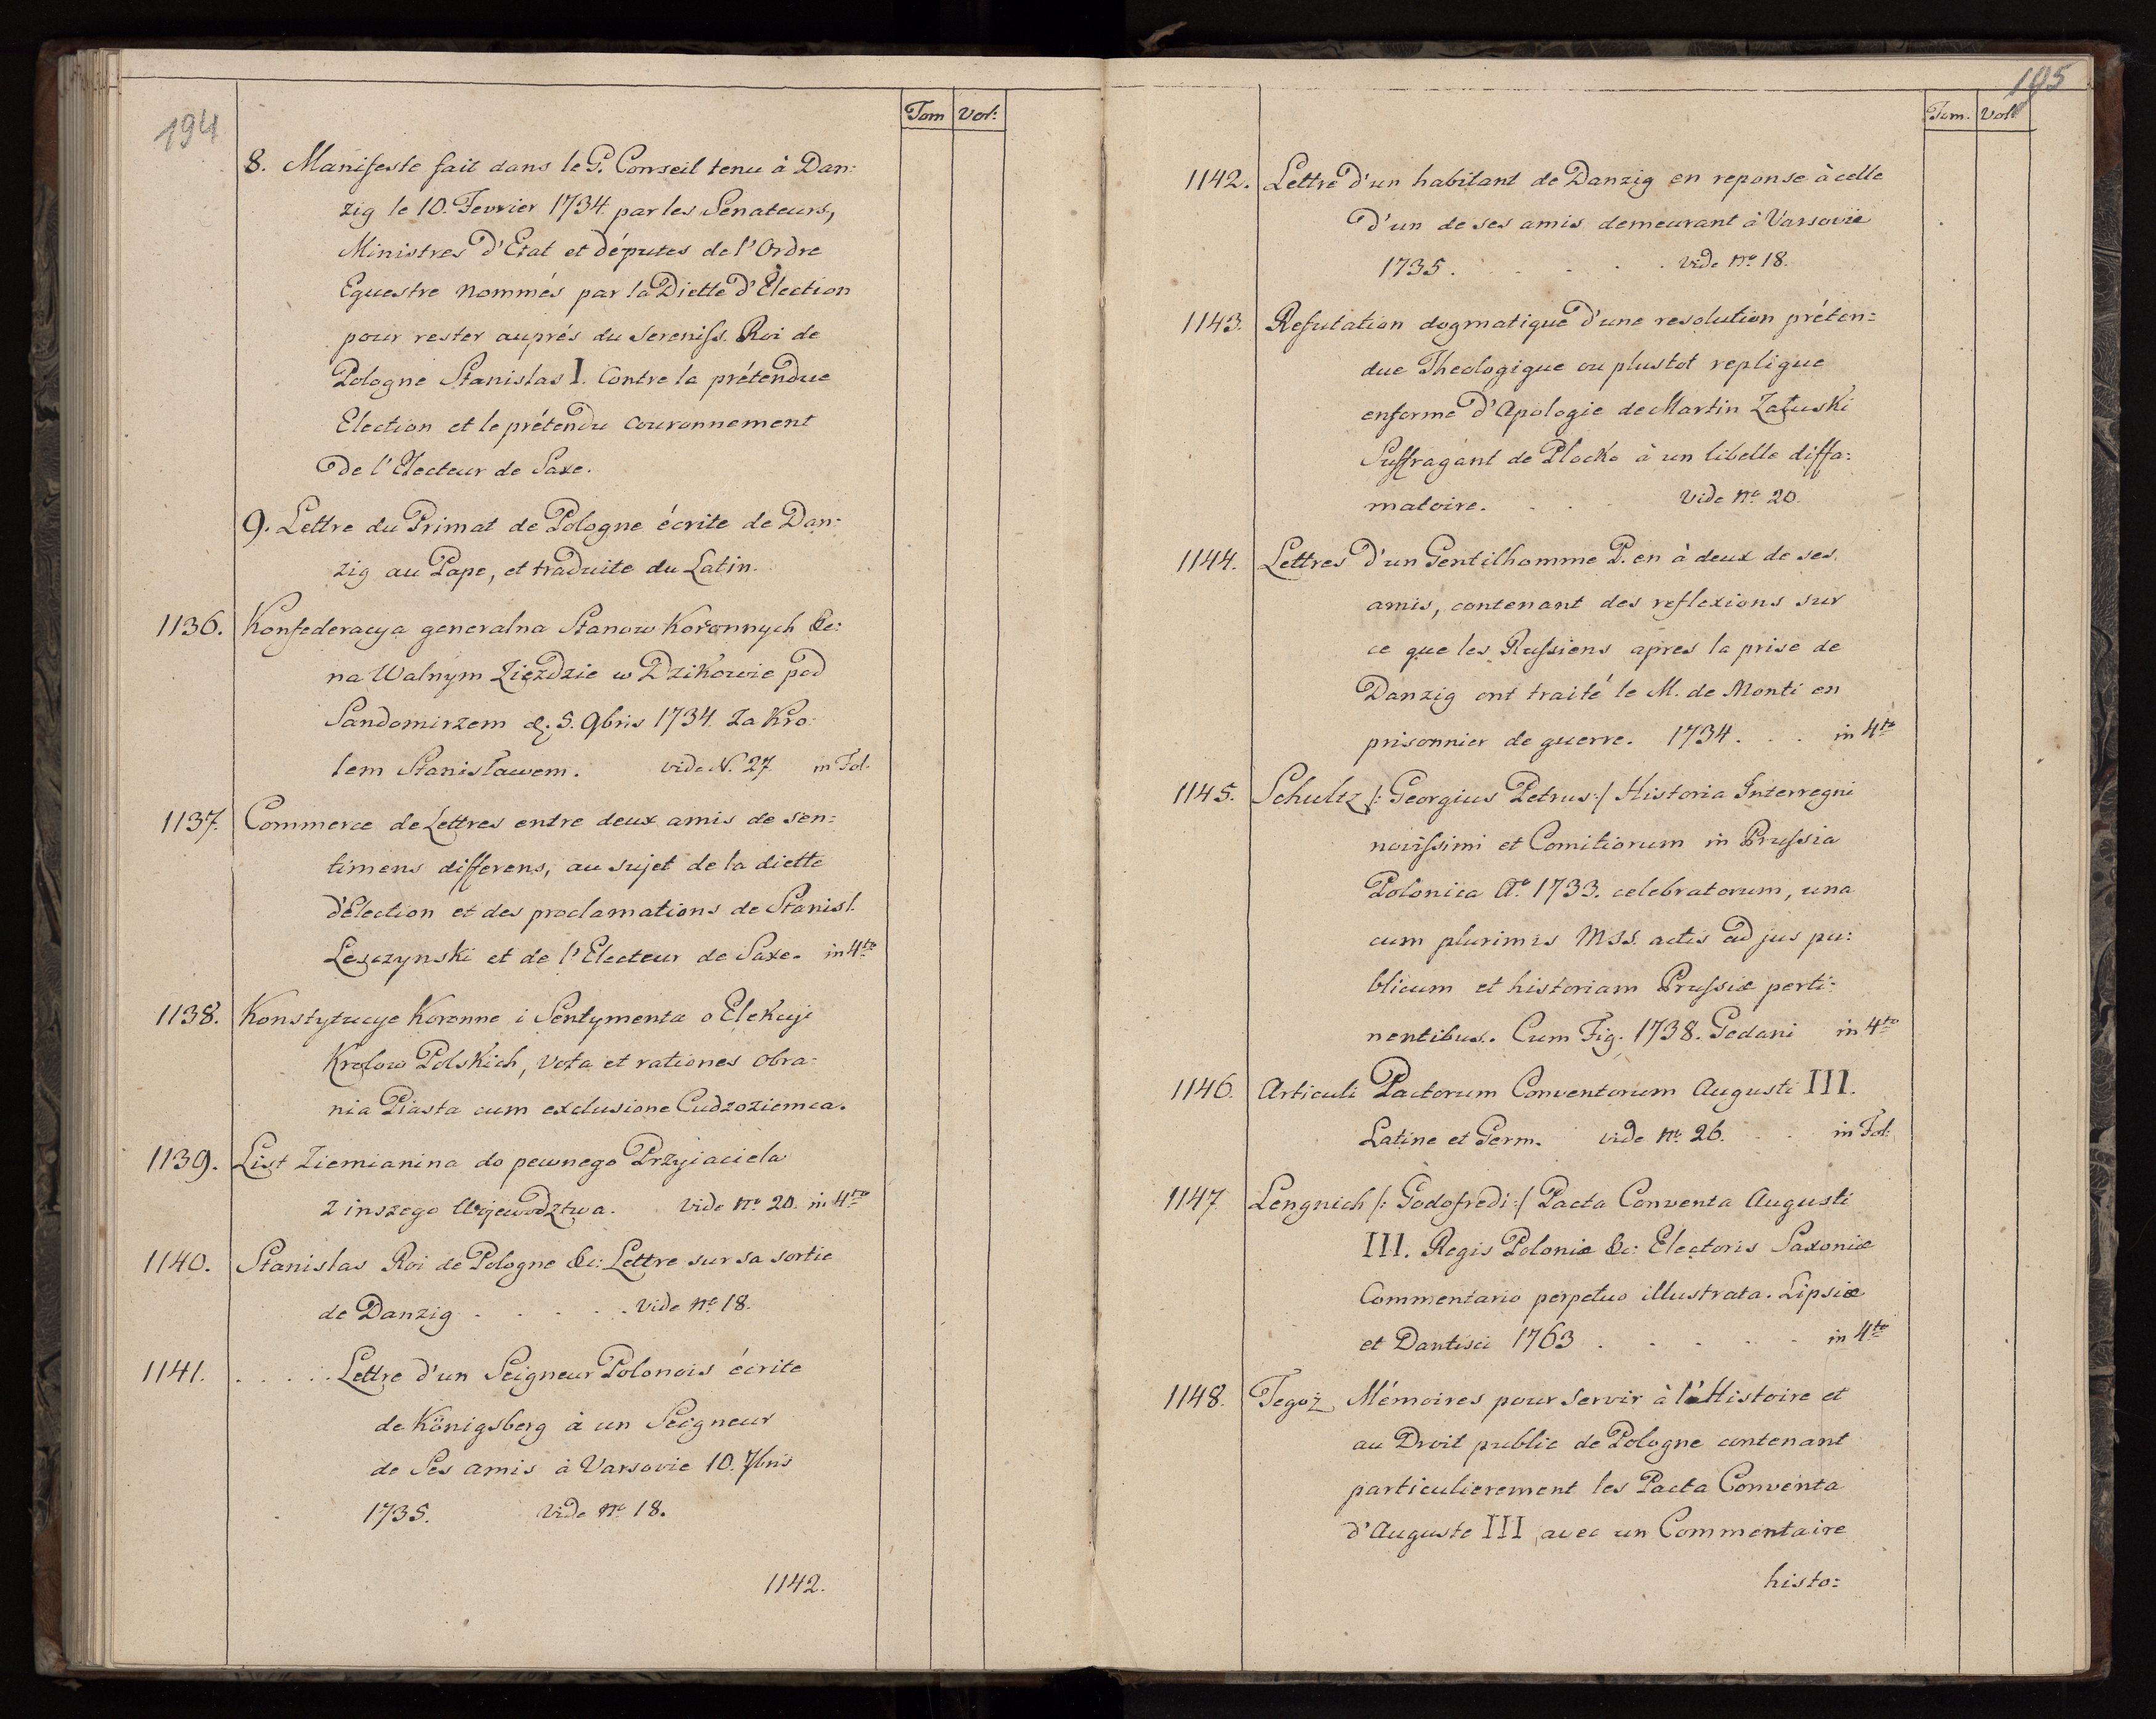 194
Tom Vol:
8. Manifeste fait dans le G. Conseil tenu à Dan:
zig le 10. Fevrier 1734 par les Senateurs,
Ministres d'Etat et députes de l'Ordre
Equestre nommés par la Diette d'Election
pour rester auprés du Sereniss. Roi de
Pologne Stanislas I. Contre la prétendue
Election et le prétendu couronnement
de l'Electeur de Saxe.
9. Lettre du Primat de Pologne écrite de Dan:
zig au Pape, et traduite du Latin.
1136. Konfederacya generalna Stanow Koronnych &c:
na Walnym Zięzdzie w Dzikowie pod
Sandomirzem d. 5. 9bris 1734. Za Kro:
lem Stanisławem. vide N. 27. in Fol.
1137. Commerce de Lettres entre deux amis de sen:
timens differens, au sujet de la diette
d'Election et des proclamations de Stanisl.
Leszczynski et de l'Electeur de Saxe. in 4to
1138. Konstytucye Koronne i Sentymenta o Elekcyi
Krolow Polskich, Vota et rationes obra:
nia Piasta cum exclusione Cudzoziemca.
1139. List Ziemianina do pewnego Przyiaciela
z inszego Wojewodztwa. Vide No 20. in 4to
1140. Stanislas Roi de Pologne &c: Lettre sur sa sortie
de Danzig . . . . . Vide No 18.
1141. . . . . . Lettre d'un Seigneur Polonois écrite
de Königsberg à un Seigneur
de Ses amis à Varsovie 10. 7bris
1735. Vide No 18.
1142.
195
Tom. Vol:
1142. Lettre d'un habitant de Danzig en reponse à celle
d'un de ses amis demeurant à Varsovie
1735. . . . . Vide No 18.
1143. Refutation dogmatique d'une resolution préten:
due Theologique ou plustot replique
enforme d'Apologie de Martin Załuski
Suffragant de Plocko à un libelle diffa:
matoire. . . . Vide No 20.
1144. Lettres d'un Gentilhomme P. en à deux de ses
amis, contenant des reflexions sur
ce que les Russiens apres la prise de
Danzig ont traité le M. de Monti en
prisonnier de guerre. 1734. . . in 4to
1145. Schultz /: Georgius Petrus :/ Historia Interregni
novissimi et Comitiorum in Prussia
Polonica Ao. 1733. celebratorum, una
cum plurimis Mss. actis ad jus pu:
blicum et historiam Prussiæ perti:
nentibus. Cum Fig. 1738. Gedani in 4to
1146. Articuli Pactorum Conventorum Augusti III.
Latine et Germ. vide No 26. . . in Fol:
1147. Lengnich /: Godofredi :/ Pacta Conventa Augusti
III. Regis Poloniæ &c: Electoris Saxoniæ
Commentario perpetuo illustrata. Lipsiæ
et Dantisci 1763 . . . . . in 4to
1148. Tegoż Mémoires pour servir à l'Histoire et
au Droit public de Pologne contenant
particulierement les Pacta Conventa
d'Auguste III, avec un Commentaire
histo: